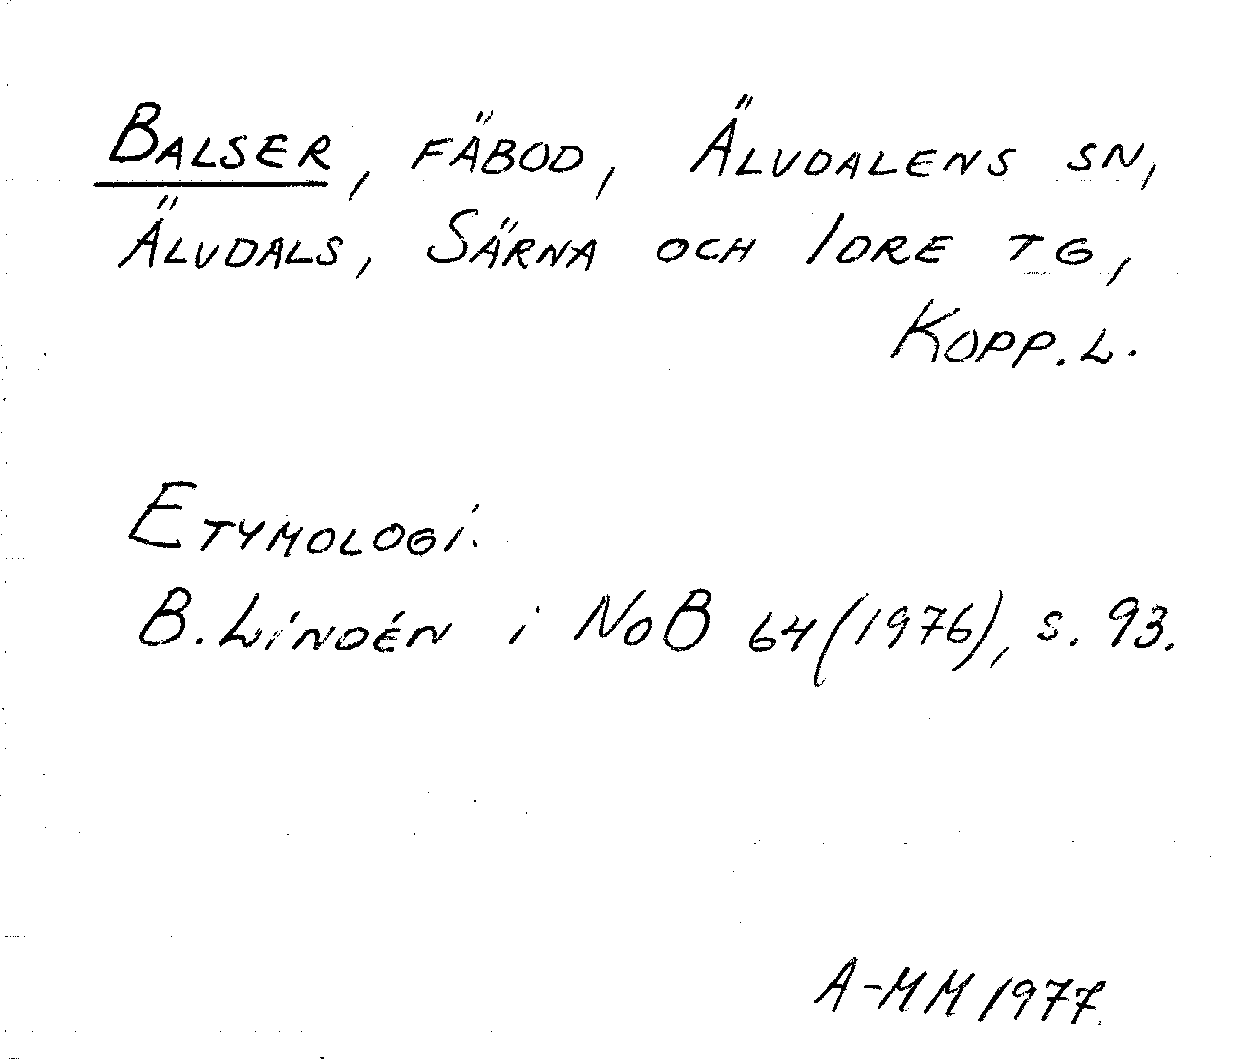 BALSER, FÄBOD, ÄLVDALENS SN,
ÄLVDALS, SÄRNA OCH IDRE TG,
KOPP. L.
ETYMOLOGI:
B. LINDÉN i NOB 64 (1976), S. 93.
A-MM 1977.